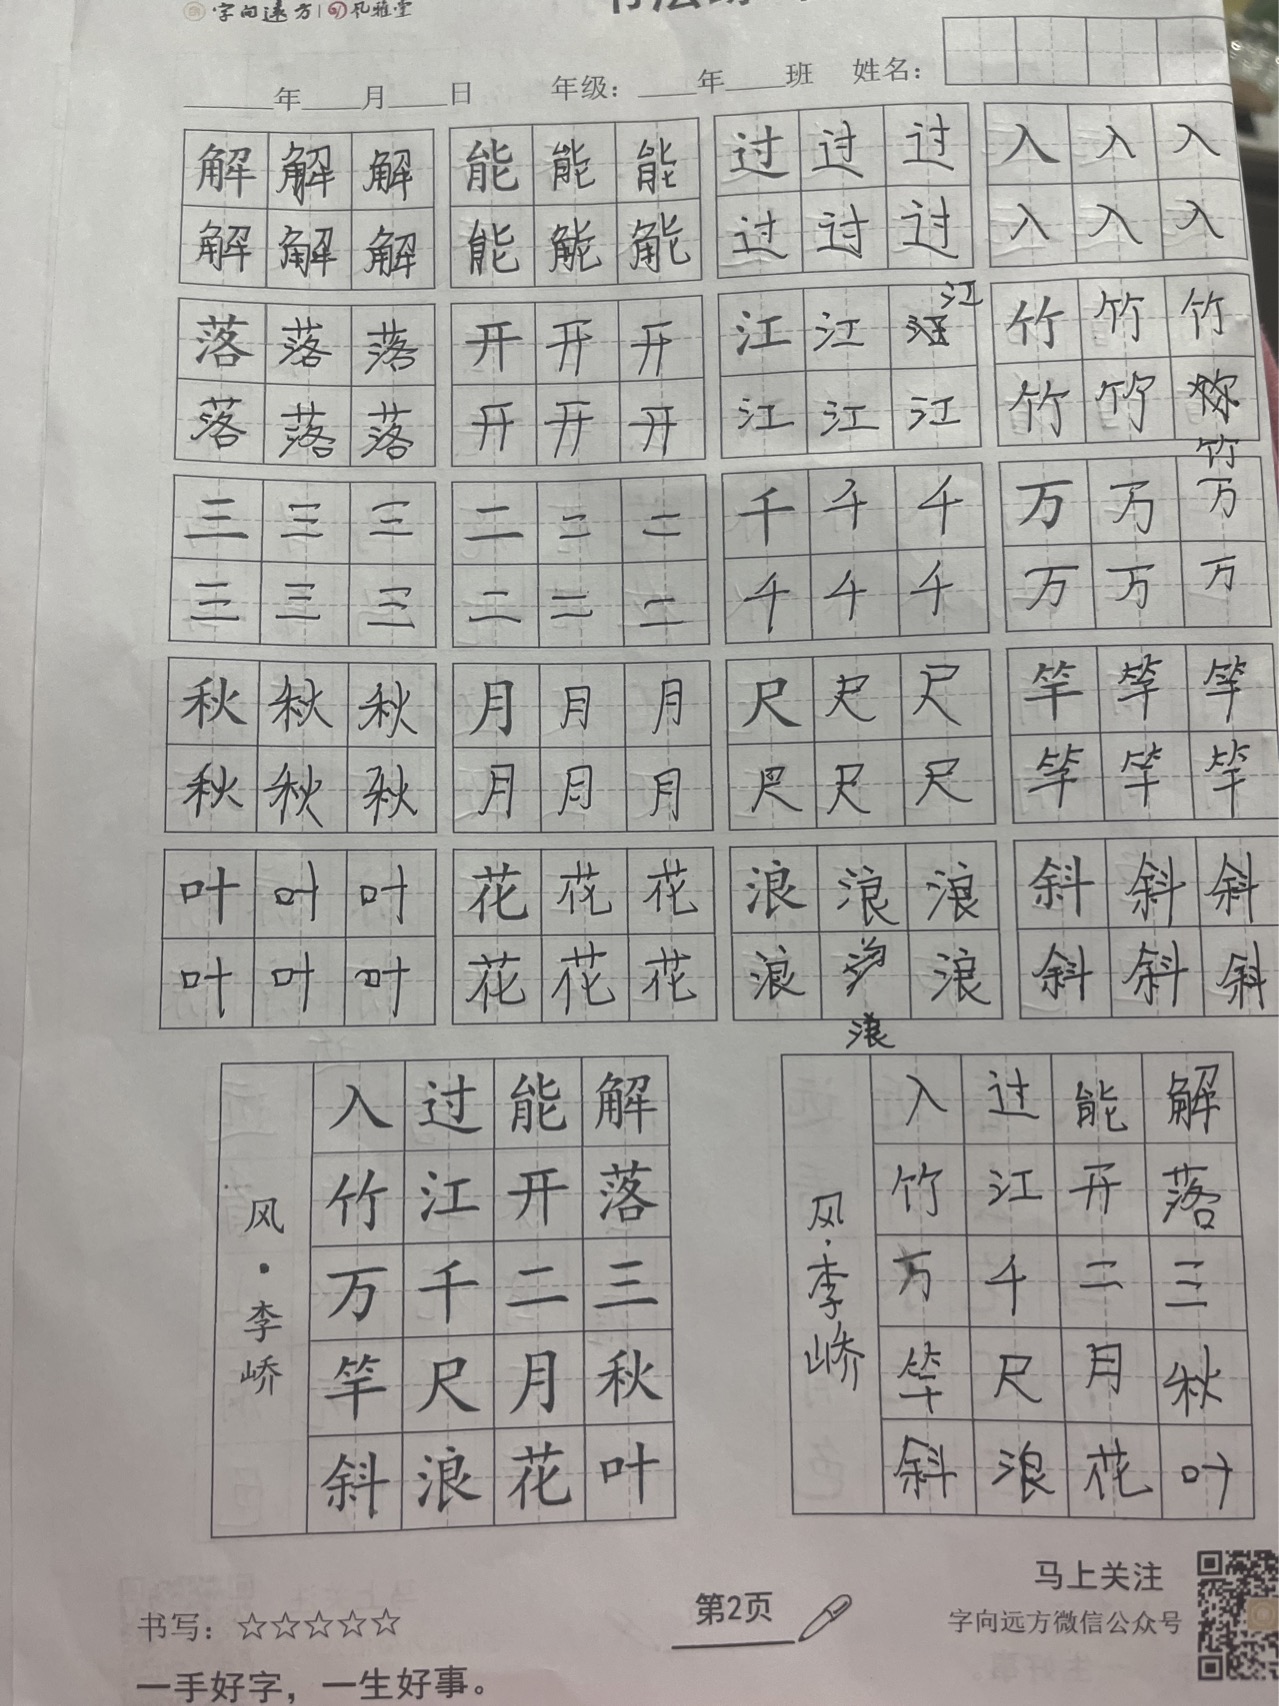 字向远方 风雅堂
年 月 日 年级： 年 班 姓名：
解 解 解 能 能 能 过 过 过 入 入 入
解 解 解 能 能 能 过 过 过 入 入 入
江
落 落 落 开 开 开 江 江 竹 竹 竹
落 落 落 开 开 开 江 江 江 竹 竹
竹
三 三 三 二 二 二 千 千 千 万 万 万
三 三 三 二 二 二 千 千 千 万 万 万
秋 秋 秋 月 月 月 尺 尺 尺 竿 竿 竿
秋 秋 秋 月 月 月 尺 尺 尺 竿 竿 竿
叶 叶 叶 花 花 花 浪 浪 浪 斜 斜 斜
叶 叶 叶 花 花 花 浪 浪 斜 斜 斜
浪
解落三秋叶
能开二月花
过江千尺浪
入竹万竿斜
风·李峤
解落三秋叶
能开二月花
过江千尺浪
入竹万竿斜
风·李峤
书写：☆☆☆☆☆
一手好字，一生好事。
第2页
马上关注
字向远方微信公众号